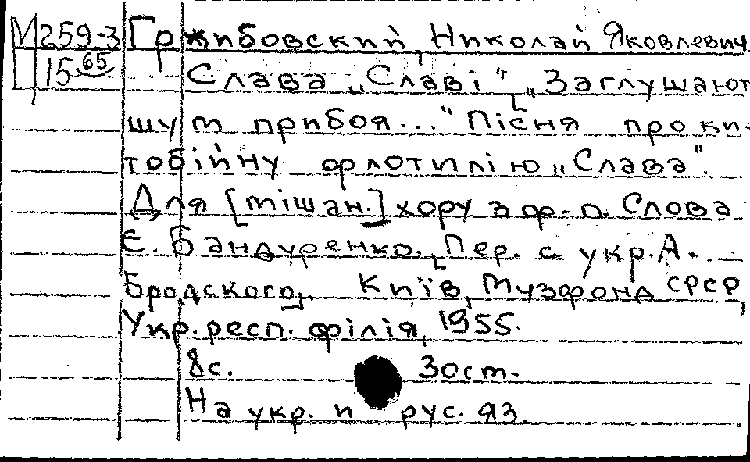 М259-3 Гржибовский, Николай Яковлевич
15 65 Слава „Славі". [„Заглушают
шум прибоя..." Пісня про ки-
тобійну флотилію „Слава".
Для [мішан.] хору з ф.-п. Слова
Є. Бандуренко. [Пер. с укр. А.
Бродского]. Київ, Музфонд СРСР,
Укр. респ. філія, 1955.
8с. 30ст.
На укр. и рус. яз.